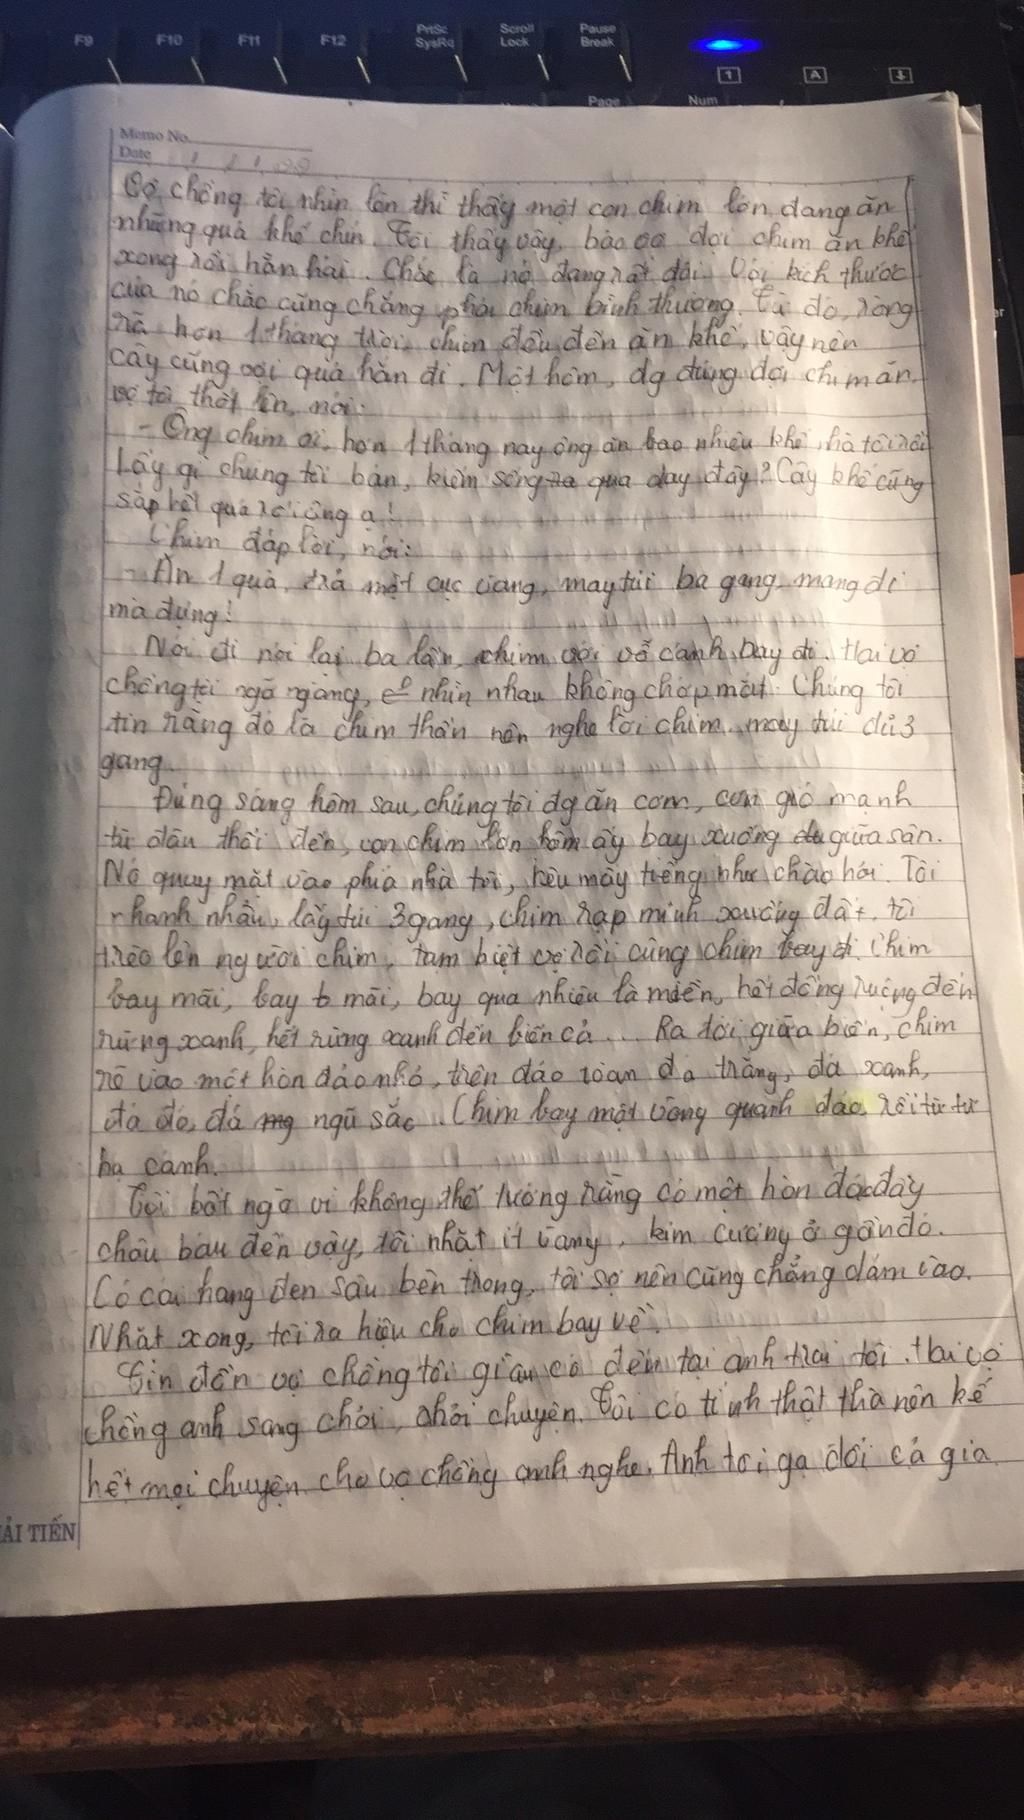 F9 F10 F11 F12 PrtSc SysRq Scroll Lock Pause Break
1 A
Page Num
Memo No.
Date
Vợ chồng tôi nhìn lên thì thấy một con chim lớn đang ăn
những quả khế chín. Tôi thấy vậy, bảo vợ đợi chim ăn khế
xong rồi hẵn hái. Chắc là nó đang rất đói. Với kích thước
của nó chắc cũng chẳng phải chim bình thường. Từ đó, ròng
rã hơn 1 tháng trời, chim đều đến ăn khế, vậy nên
cây cũng vơi quả hẳn đi. Một hôm, đg đứng đợi chim ăn,
vợ tôi thốt lên, nói:
- Ông chim ơi, hơn 1 tháng nay ông ăn bao nhiêu khế nhà tôi rồi
Lấy gì chúng tôi bán, kiếm sống qua day đây? Cây khế cũng
sắp hết quả rồi ông ạ!
Chim đáp lời, nói:
- Ăn 1 quả, trả một cục vàng, may túi ba gang, mang đi
mà đựng!
Nói đi nói lại ba lần, chim vội vỗ cánh bay đi. Hai vợ
chồng tôi ngỡ ngàng, nhìn nhau không chớp mắt. Chúng tôi
tin rằng đó là chim thần nên nghe lời chim, may túi đủ 3
gang.
Đúng sáng hôm sau, chúng tôi đg ăn cơm, cơn gió mạnh
từ đâu thổi đến, con chim lớn hôm ấy bay xuống giữa sân.
Nó quay mặt vào phía nhà tôi, kêu mấy tiếng như chào hỏi. Tôi
nhanh nhẩu, lấy túi 3 gang, chim rạp mình xuống đất, tôi
trèo lên người chim, tạm biệt vợ rồi cùng chim bay đi. Chim
bay mãi, bay mãi, bay qua nhiều là miền, hết đồng ruộng đến
rừng xanh, hết rừng xanh đến biển cả... Ra tới giữa biển, chim
rẽ vào một hòn đảo nhỏ, trên đảo toàn đá trắng, đá xanh,
đá đỏ, đá ngũ sắc. Chim bay một vòng quanh đảo, rồi từ từ
hạ cánh.
Tôi bất ngờ vì không thể tưởng rằng có một hòn đảo đầy
châu báu đến vậy, tôi nhặt ít vàng, kim cương ở gần đó.
Có cái hang đen sâu bên trong, tôi sợ nên cũng chẳng dám vào.
Nhặt xong, tôi ra hiệu cho chim bay về.
Tin đồn vợ chồng tôi giàu có đến tai anh trai tôi. Hai vợ
chồng anh sang chơi, hỏi chuyện. Tôi có tính thật thà nên kể
hết mọi chuyện cho vợ chồng anh nghe. Anh tôi gạ đổi cả gia
ẢI TIẾN